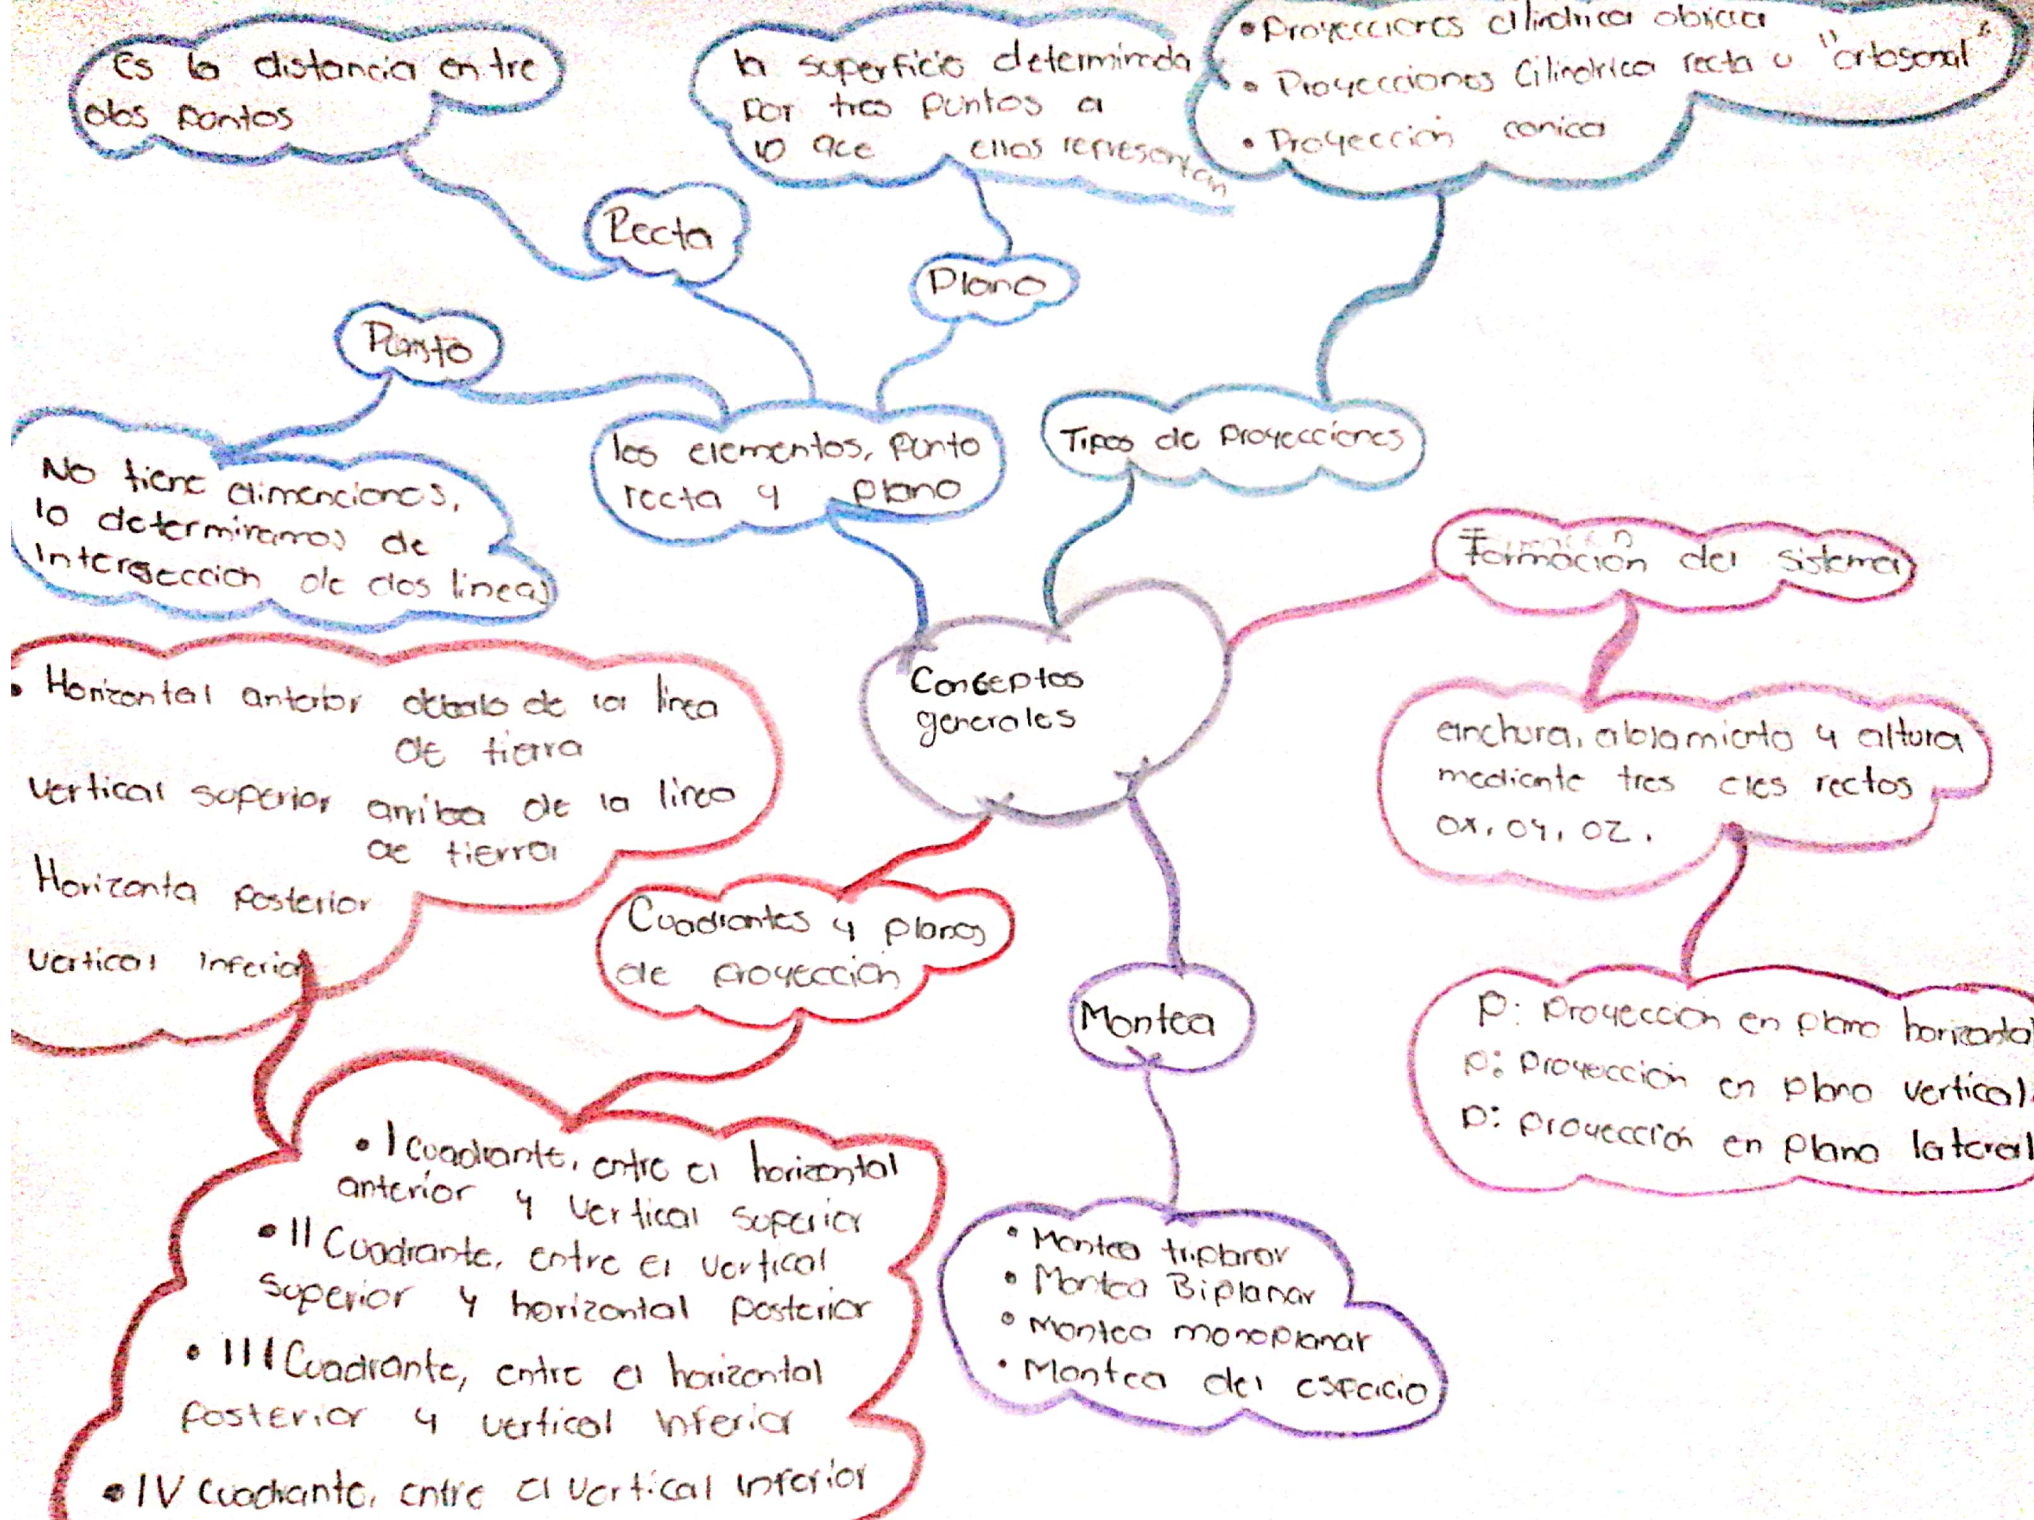 Es la distancia entre
dos pontos
la superficie determinada
por tres puntos a
lo qce ellos representan
• Proyecciones cilindrica oblicua
• Proyecciones Cilindrica recta u "ortogonal"
• Proyección conica
Recta
Plano
Punto
los elementos, punto
recta y plano
Tipos de proyecciones
No tiene dimenciones,
lo determinamos de
intersección de dos lineas
Formación del sistema
Conceptos
generales
• Horizontal anterior debalo de la linea
de tierra
vertical superior arriba de la linea
de tierra
Horizonta posterior
vertical inferior
anchura, alojamiento y altura
mediante tres ejes rectos
ox, oy, oz.
Cuadrantes y planos
de proyección
Montea
P: Proyección en plano horizontal
P: Proyección en plano vertical.
P: proyección en plano lateral
• I Cuadrante, entre el horizontal
anterior y vertical superior
• II Cuadrante, entre el vertical
superior y horizontal posterior
• III Cuadrante, entre el horizontal
posterior y vertical inferior
• IV cuadrante, entre el vertical inferior
• Montea triplanar
• Montea Biplanar
• Montea monoplanar
• Montea del espacio